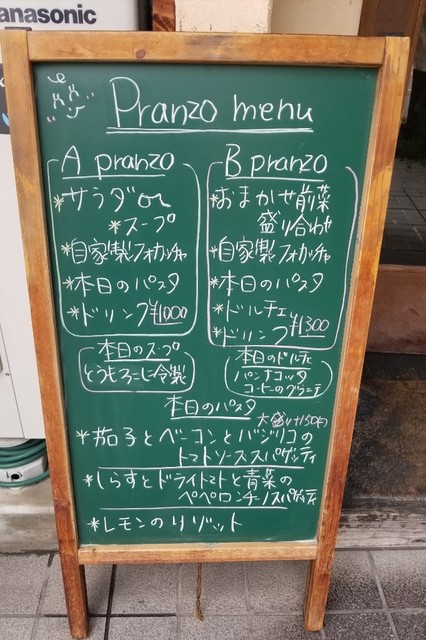 anasonic
Pranzo menu
A pranzo
*サラダor
*スープ
*自家製フォカッチャ
*本日のパスタ
*ドリンク¥1000
B pranzo
*おまかせ前菜
盛り合わせ
*自家製フォカッチャ
*本日のパスタ
*ドルチェ
*ドリンク¥1300
本日のスープ
とうもろこし冷製
本日のドルチェ
パンナコッタ
コーヒーのグラニテ
本日のパスタ
大盛り+150円
*茄子とベーコンとバジリコの
トマトソーススパゲッティ
*しらすとドライトマトと青菜の
ペペロンチーノスパゲッティ
*レモンのリゾット